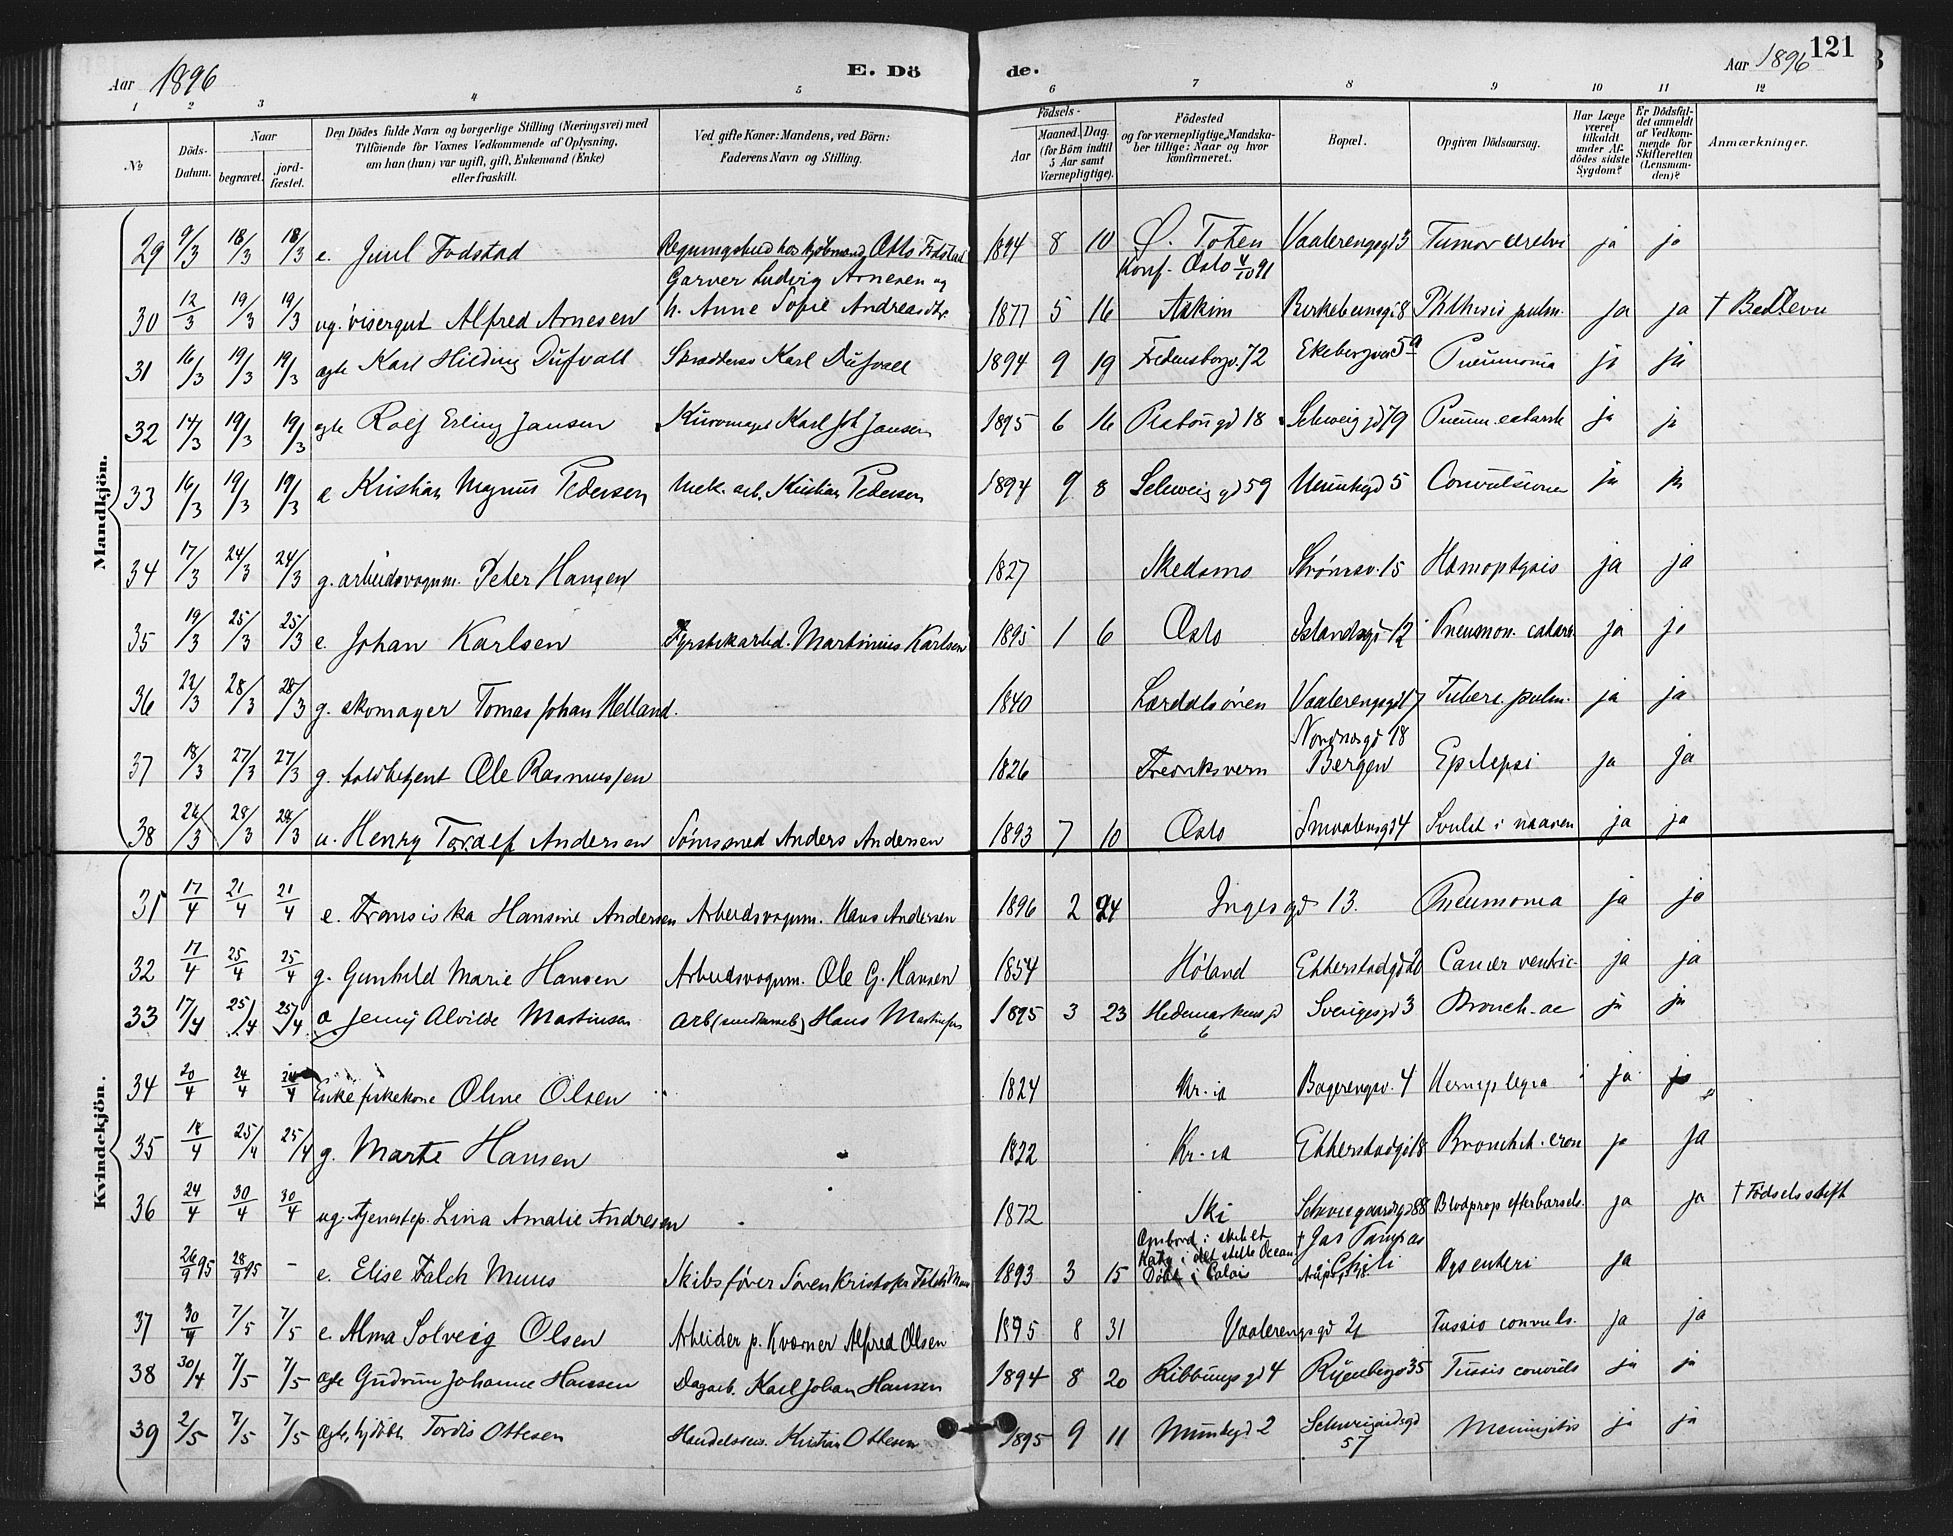 Aar 1896
E. Dö
de.
Aar 1896
121
1 2 3 4 5 6 7 8 9 10 11 12
No
Döds-Datum.
Naar
begravet.
jord-fæstet.
Den Dödes fulde Navn og borgerlige Stilling (Næringsvei) med
Tilföiende for Voxnes Vedkommende af Oplysning,
om han (hun) var ugift, gift, Enkemand (Enke)
eller fraskilt.
Ved gifte Koner: Mandens, ved Börn:
Faderens Navn og Stilling.
Födsels-
Aar
Maaned. Dag.
(for Börn indtil
5 Aar samt
Værnepligtige).
Födested
og for værnepligtige Mandska-
ber tillige: Naar og hvor
konfirmeret.
Bopæl.
Opgiven Dödsaarsag.
Har Læge
været
tilkaldt
under Af-
dödes sidste
Sygdom?
Er Dödsfal-
det anmeldt
af Vedkom-
mende for
Skifteretten
(Lensman-
den)?
Anmærkninger.
Mandkjön.
29 9/3 18/3 18/3 e. Juul Fodstad Otto Fodstad 1894 8 10 Ø. Toten Vaalerengsgd 3 Tumor cerebri ja ja
Konf. Oslo 4/10 91
Garver Ludvig Arnesen og
30 12/3 19/3 19/3 ug. visergut Alfred Arnesen h. Anne Sofie Andreasdtr. 1877 5 16 Askim Birkebeinsg. 8 Phthisis pulm. ja ja †
31 16/3 19/3 19/3 ægte Karl Hilding Dufvall Karl Dufvall 1894 9 19 Fredensborgv. 72 Ekebergvei 5a Pneumonia ja ja
32 14/3 19/3 19/3 ægte Rolf Erling Jansen Kurvmager Karl Joh Jansen 1895 6 16 Platougd 18 Schweigd 79 Pneum. catarrh ja ja
33 16/3 19/3 19/3 e Kristian Magnus Pedersen Mek. arb. Kristian Pedersen 1894 9 8 Schweiggd 59 Munkegd 5 Convulsioner ja ja
34 17/3 24/3 24/3 g. arbeidsvognm. Peter Hansen 1827 Skedsmo Strømsv. 15 Hæmoptysis ja ja
35 19/3 25/3 25/3 e. Johan Karlsen Fyrstikarbd. Martinius Karlsen 1895 1 6 Oslo Islandsgd 12 Pneumon. catarrh. ja ja
36 22/3 28/3 28/3 g. skomager Tomas Johan Helland. 1840 Lærdalsøren Vaalerengsgd 7 Tuberc. pulm. ja ja
Nordnesgd 18
37 18/3 27/3 27/3 g. toldbetjent Ole Rasmussen 1826 Fredriksvern Bergen Epilepsi ja ja
38 22/3 28/3 28/3 u. Henry Toralf Andersen Sømsmed Anders Andersen 1893 7 10 Oslo Smaalensgd 4 Svulst i maven ja ja
Kvindekjön.
31 17/4 21/4 21/4 e. Fransiska Hansine Andersen Arbeidsvognm. Hans Andersen 1896 2 24 Ingesgd 13. Pneumonia ja ja
32 17/4 25/4 25/4 g. Gunhild Marie Hansen Arbeidsvognm. Ole G. Hansen 1854 Høland Etterstadgd 20 Cancer ventric ja ja
33 17/4 25/4 25/4 æ Jenny Alvilde Martinsen Arb. Hans Martinsen 1895 3 23 Hedemarkensgd 6 Sverigesgd 3 Bronch. ac ja ja
34 20/4 24/4 24/4 Enke fiskekone Oline Olsen 1824 Kr.ia Bøgerengsv. 4 Hemiplegia ja ja
35 18/4 25/4 25/4 g. Marte Hansen 1822 Kr.ia Etterstadgd 18 Bronchit. cron ja ja
36 24/4 30/4 30/4 ug. tjenestep. Lina Amalie Andresen 1872 Ski Schweigaardsgd 88 Blodprop efter barsels. ja ja † Fødselsstift
26/9 95 28/9 95 - e. Elise Falch Muus Skibsfører Søren Kristofer Falch Muus 1893 3 15 Ombord i skibet Kaia i det stille Ocean Døbt i Calais † Jas Pampas Chili Dysenteri ja
37 30/4 7/5 7/5 e. Alma Solveig Olsen Arbeider p. Kværner Alfred Olsen 1895 8 31 Vaalerengsgd 21 Tussis convuls. ja ja
38 30/4 7/5 7/5 ægte Gudrun Johanne Hansen Dagarb. Karl Johan Hansen 1894 8 20 Ribbungsgd 4 Ryenbergd 35 Tussis convuls ja ja
39 2/5 7/5 7/5 ægte, hjdøbt Tordis Ottesen Handelsrev. Kristian Ottesen 1895 9 11 Munkegd 2 Schweigaardsgd 57 Meningitis ja ja